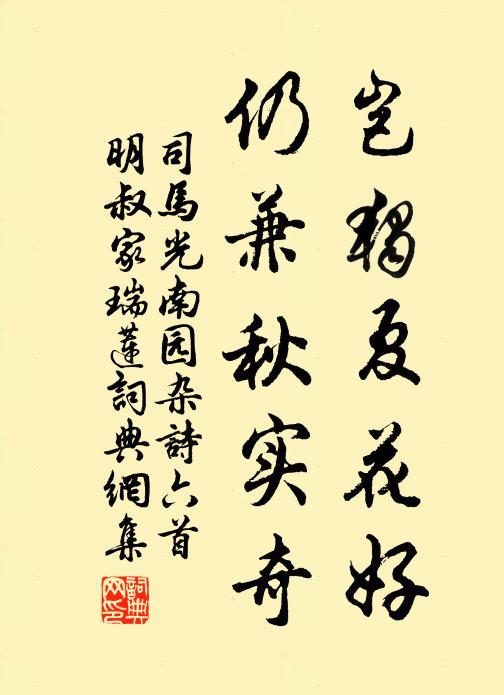 岂独夏花好
仍兼秋实奇
司馬光南园杂詩六首
明叔家瑞蓮詞典網集
詞典网印